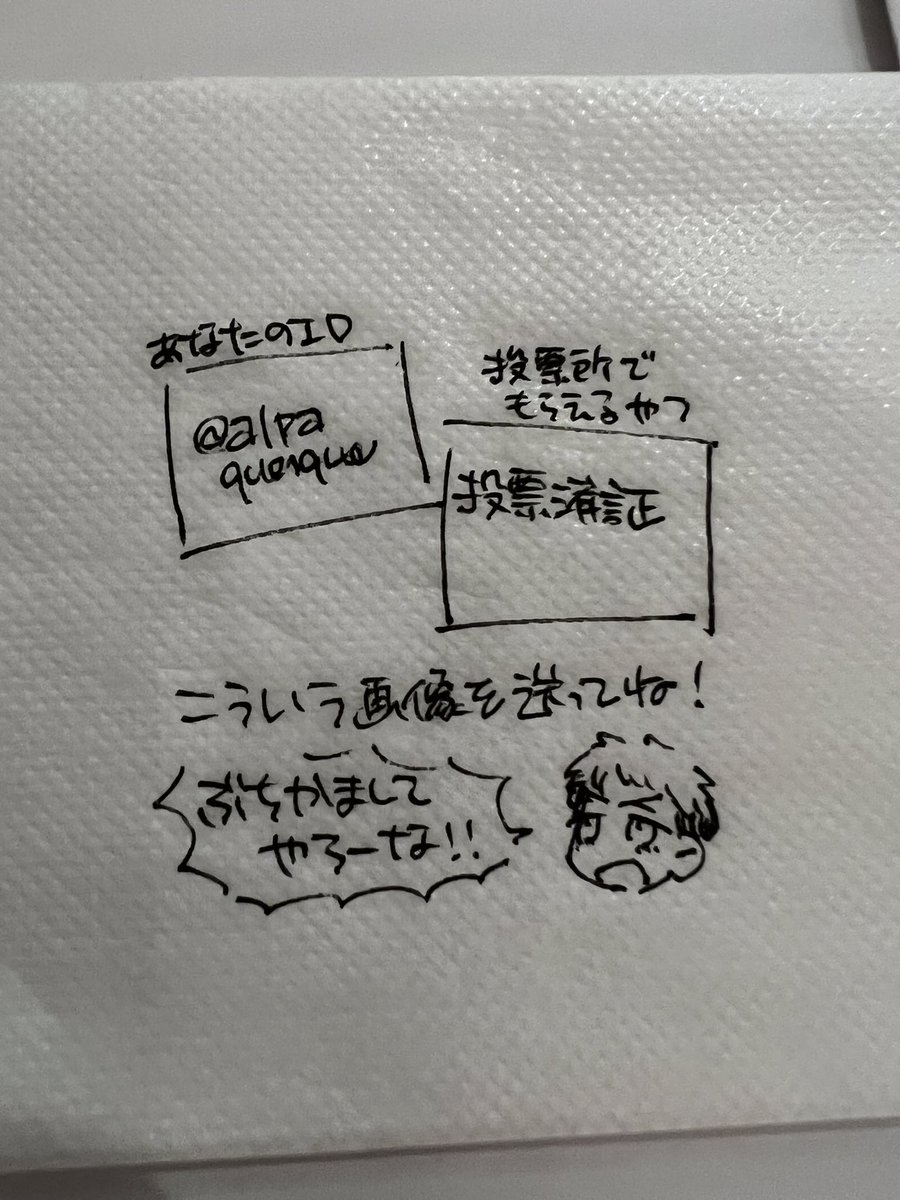 あなたのID
@alpa
querque
投票所で
もらえるやつ
投票済証
こういう画像を送ってね!
ぶちかまして
やろーな!!